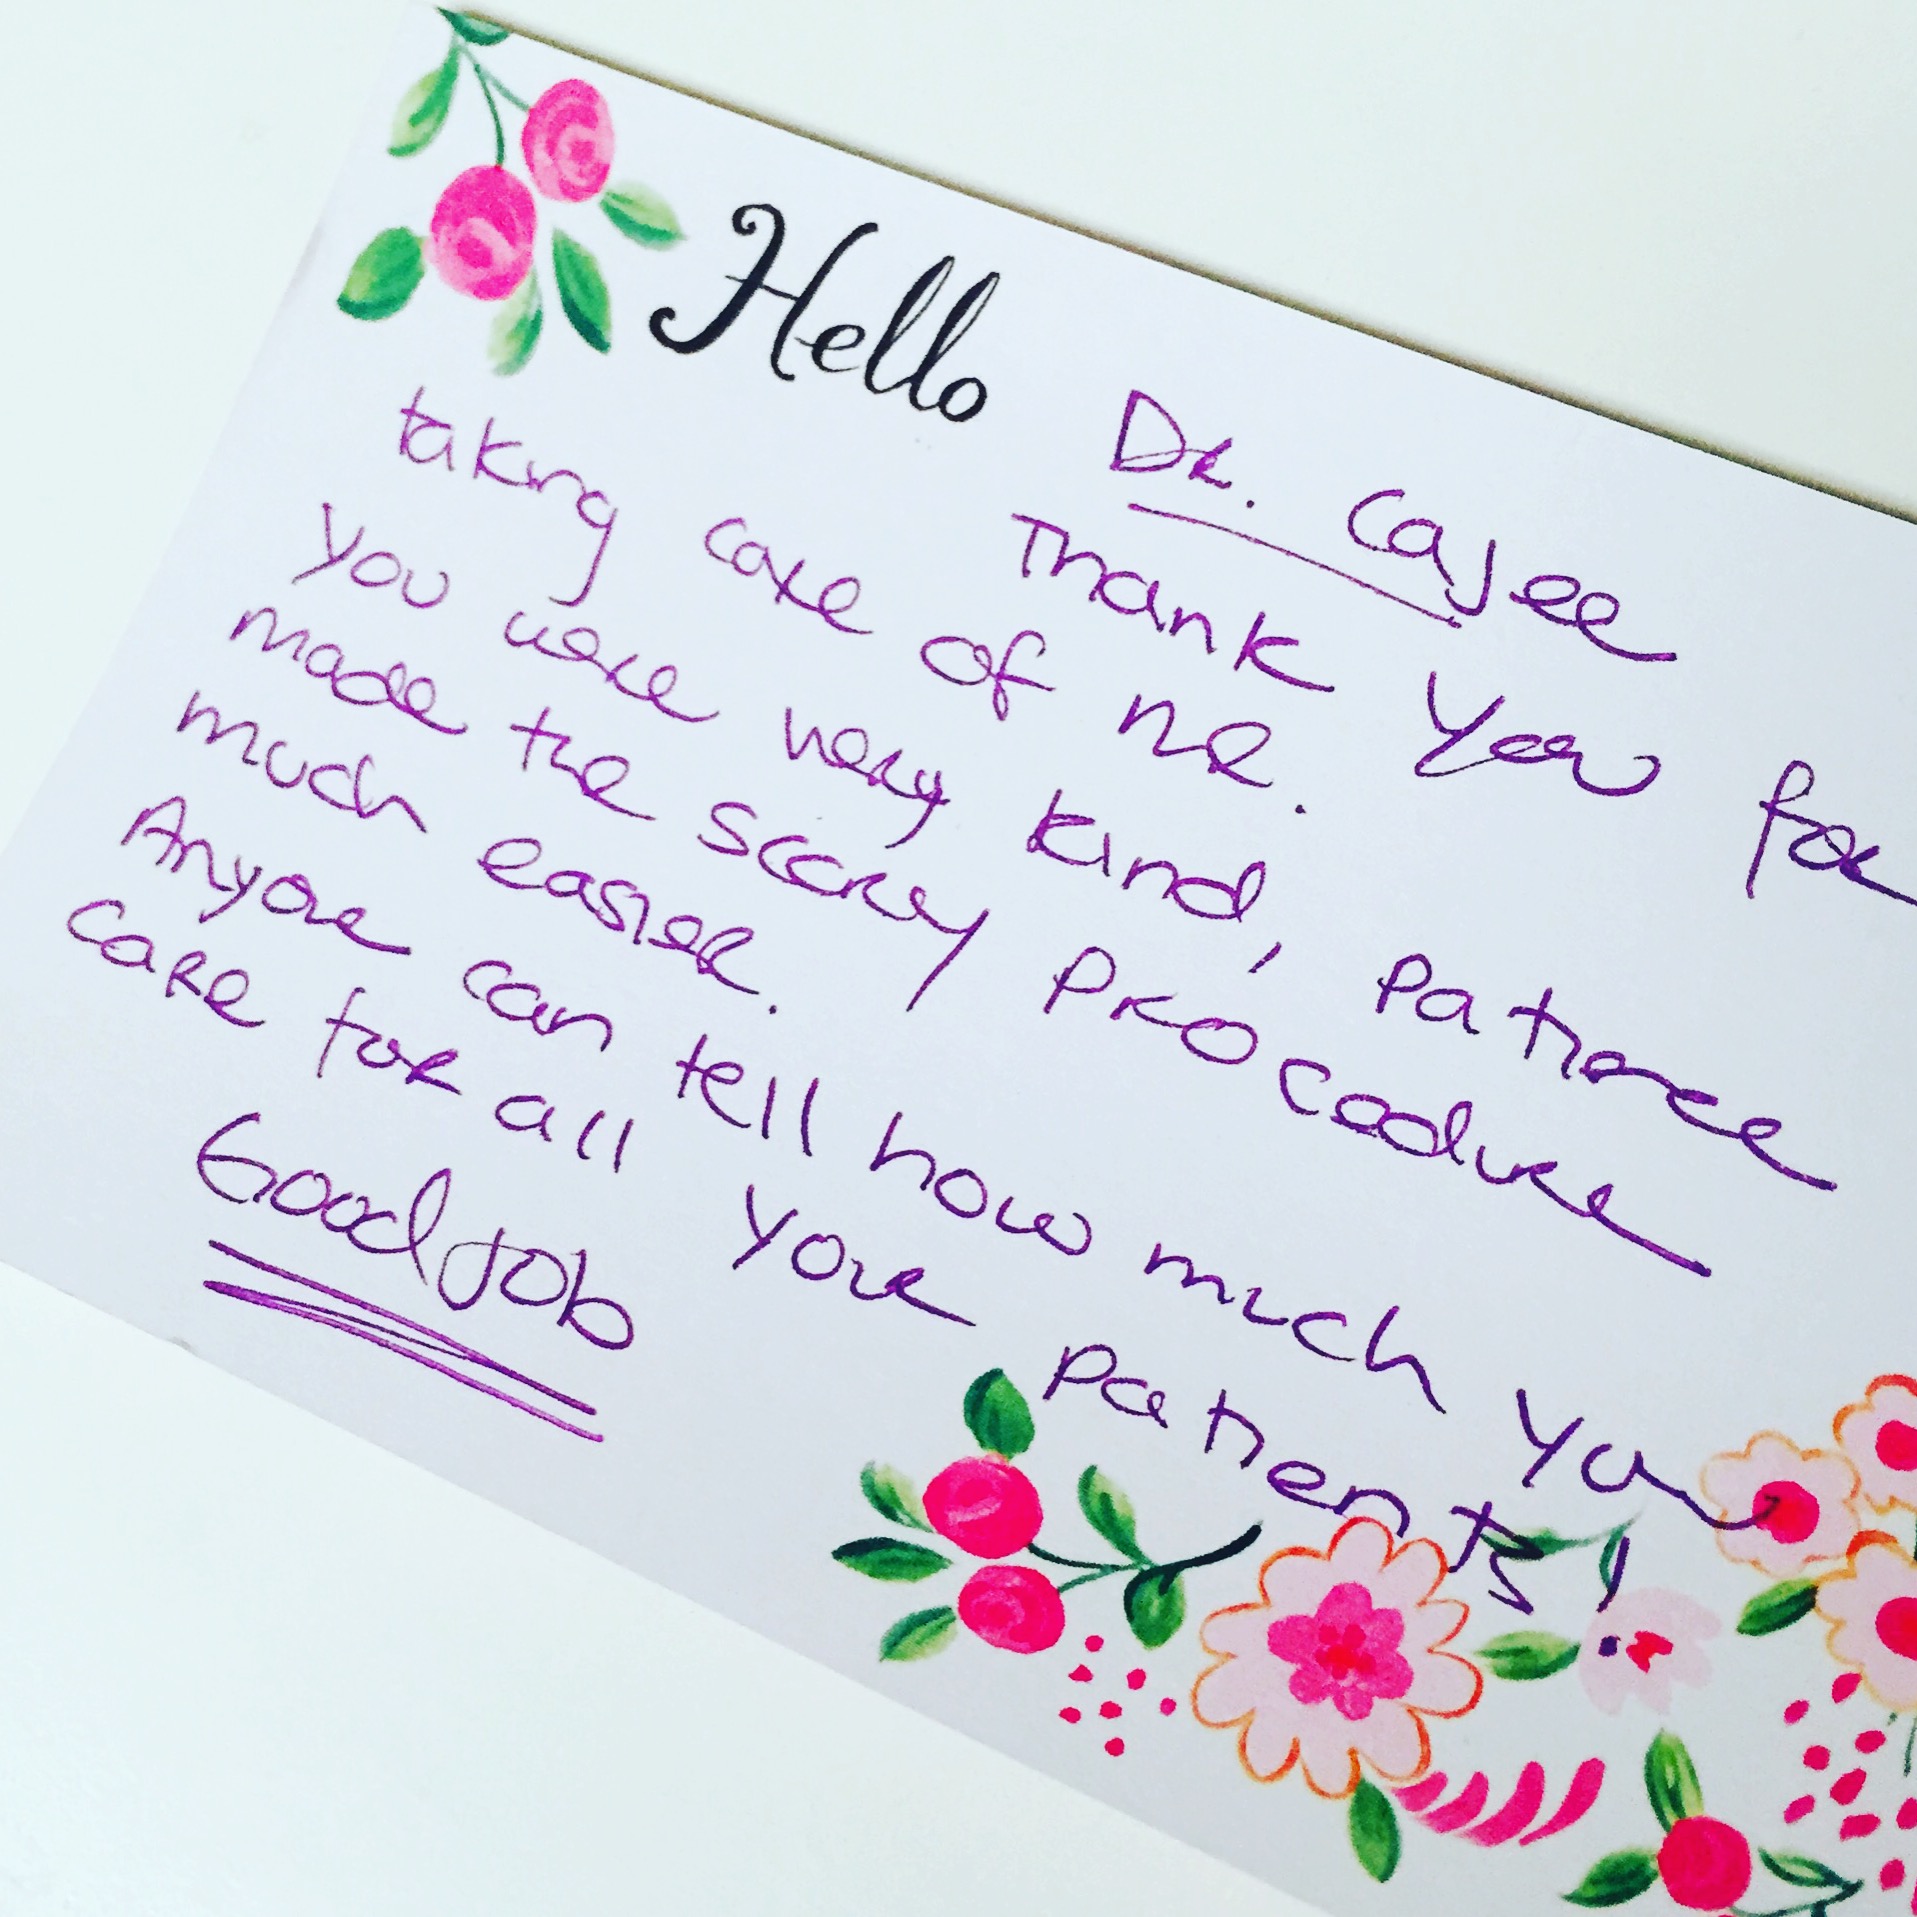 Hello Dr. Cajee
Thank you for
taking care of me.
you were very kind, patience
made the scary procedure
much easier.
Anyone can tell how much you
care for all your patients!
Good job